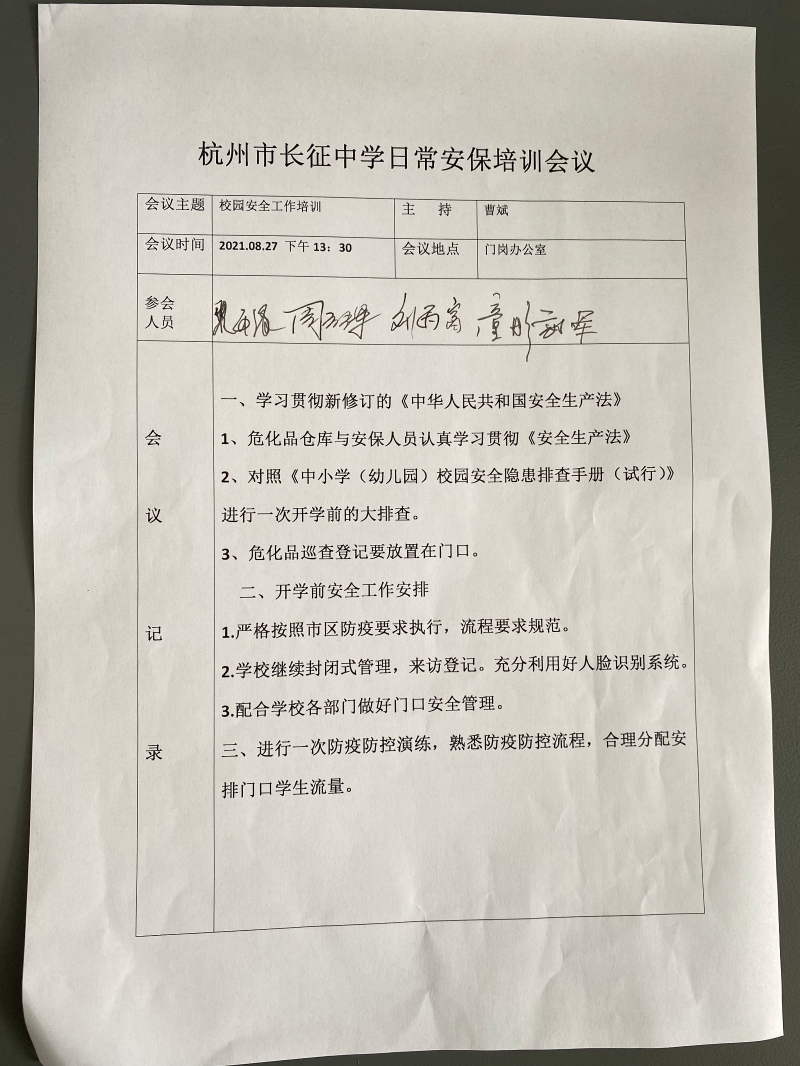 杭州市长征中学日常安保培训会议
会议主题 校园安全工作培训 主 持 曹斌
会议时间 2021.08.27 下午 13：30 会议地点 门岗办公室
参会
人员
会
议
记
录
一、学习贯彻新修订的《中华人民共和国安全生产法》
1、危化品仓库与安保人员认真学习贯彻《安全生产法》
2、对照《中小学（幼儿园）校园安全隐患排查手册（试行）》
进行一次开学前的大排查。
3、危化品巡查登记要放置在门口。
二、开学前安全工作安排
1.严格按照市区防疫要求执行，流程要求规范。
2.学校继续封闭式管理，来访登记。充分利用好人脸识别系统。
3.配合学校各部门做好门口安全管理。
三、进行一次防疫防控演练，熟悉防疫防控流程，合理分配安
排门口学生流量。